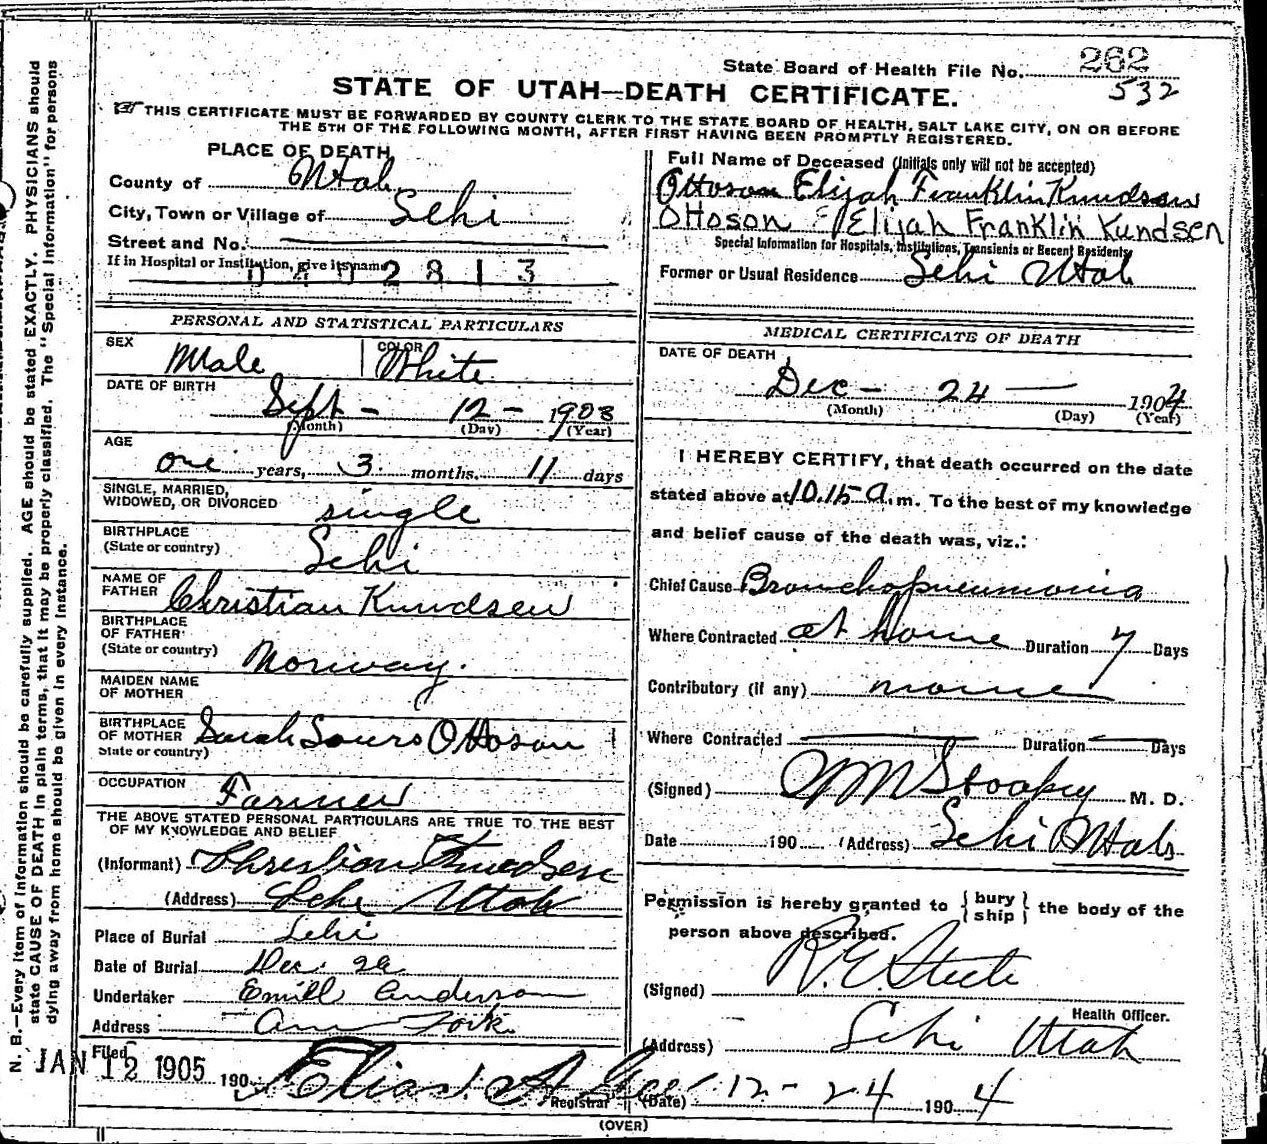 State Board of Health File No. 262
532
STATE OF UTAH—DEATH CERTIFICATE.
THIS CERTIFICATE MUST BE FORWARDED BY COUNTY CLERK TO THE STATE BOARD OF HEALTH, SALT LAKE CITY, ON OR BEFORE
THE 5TH OF THE FOLLOWING MONTH, AFTER FIRST HAVING BEEN PROMPTLY REGISTERED.
PLACE OF DEATH
County of Utah
City, Town or Village of Lehi
Street and No.
If in Hospital or Institution, give its name
0402813
Full Name of Deceased (Initials only will not be accepted)
Ottoson Elijah Franklin Kundsen
Ottoson Elijah Franklin Kundsen
Special Information for Hospitals, Institutions, Transients or Recent Residents
Former or Usual Residence Lehi Utah
PERSONAL AND STATISTICAL PARTICULARS
SEX Male COLOR White
DATE OF BIRTH
Sept - 12 - 1903
(Month) (Day) (Year)
AGE
one years, 3 months, 11 days
SINGLE, MARRIED,
WIDOWED, OR DIVORCED single
BIRTHPLACE
(State or country) Lehi
NAME OF
FATHER Christian Kundsen
BIRTHPLACE
OF FATHER
(State or country) Norway.
MAIDEN NAME
OF MOTHER
BIRTHPLACE
OF MOTHER Sarah Ottoson
State or country)
OCCUPATION Farmer
THE ABOVE STATED PERSONAL PARTICULARS ARE TRUE TO THE BEST
OF MY KNOWLEDGE AND BELIEF
(Informant)
(Address) Lehi Utah
Place of Burial Lehi
Date of Burial Dec. 26
Undertaker Emill Anderson
Address Am Fork.
Filed JAN 12 1905 190
Elias A
Registrar
MEDICAL CERTIFICATE OF DEATH
DATE OF DEATH
Dec - 24 1904
(Month) (Day) (Year)
I HEREBY CERTIFY, that death occurred on the date
stated above at 10.15 a.m. To the best of my knowledge
and belief cause of the death was, viz.:
Chief Cause Bronchopneumonia
Where Contracted at home Duration 7 Days
Contributory (if any) none
Where Contracted Duration Days
(Signed) Stookey M. D.
Date 190 (Address) Lehi Utah
Permission is hereby granted to { bury ship } the body of the
person above described.
(Signed) R. E. Steele
Health Officer.
(Address) Lehi Utah
(Date) 12 - 24 1904
(OVER)
N. B.—Every item of information should be carefully supplied. AGE should be stated EXACTLY. PHYSICIANS should
state CAUSE OF DEATH in plain terms, that it may be properly classified. The "Special Information" for persons
dying away from home should be given in every instance.